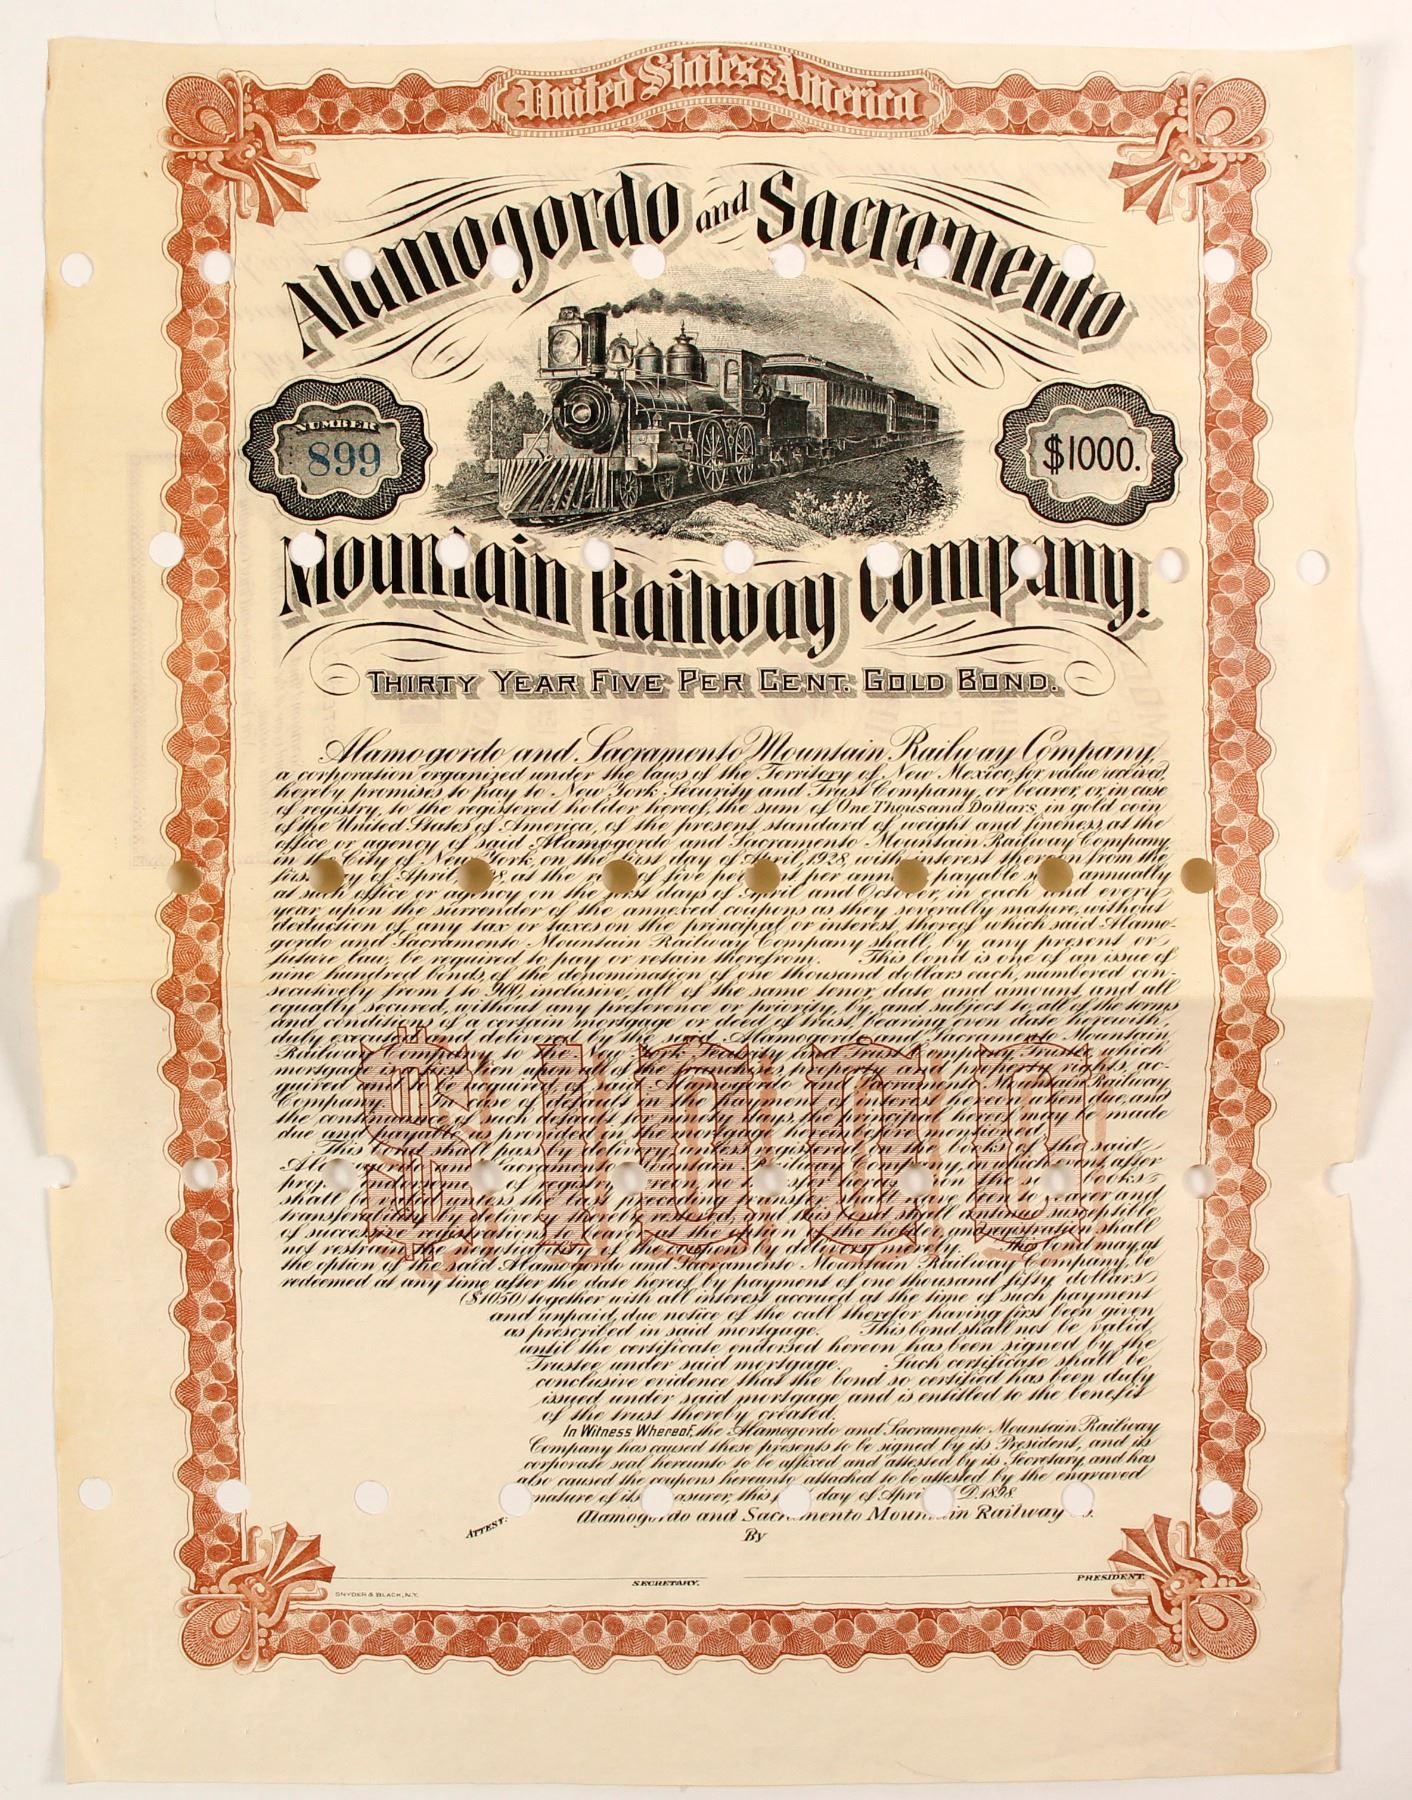 United States of America
Alamogordo and Sacramento
NUMBER
899
$1000.
Mountain Railway Company.
THIRTY YEAR FIVE PER CENT. GOLD BOND.
Alamogordo and Sacramento Mountain Railway Company,
a corporation organized under the laws of the Territory of New Mexico, for value received,
hereby promises to pay to New York Security and Trust Company, or bearer, or, in case
of registry, to the registered holder hereof, the sum of One Thousand Dollars, in gold coin
of the United States of America, of the present standard of weight and fineness, at the
office or agency of said Alamogordo and Sacramento Mountain Railway Company,
in the City of New York, on the first day of April, 1928, with interest thereon from the
first day of April, at the rate of five per cent per annum payable semi annually
at such office or agency on the first days of April and October, in each and every
year upon the surrender of the annexed coupons as they severally mature, without
deduction of any tax or taxes on the principal or interest, thereof which said Alamo-
gordo and Sacramento Mountain Railway Company shall, by any present or
future law, be required to pay or retain therefrom. This bond is one of an issue of
nine hundred bonds, of the denomination of one thousand dollars each, numbered con-
secutively from 1 to 900, inclusive, all of the same tenor, date and amount, and all
equally secured, without any preference or priority, by and subject to, all of the terms
and conditions of a certain mortgage or deed of trust, bearing even date herewith,
duly executed and delivered by the said Alamogordo and Sacramento Mountain
Railway Company to the New York Security and Trust Company, Trustee, which
mortgage is a first lien upon all of the franchises, property and property rights, ac-
quired and to be acquired, of said Alamogordo and Sacramento Mountain Railway
Company. In case of defaults in the payment of interest hereon when due, and
the continuance of such default for ninety days, the principal hereof may be made
due and payable as provided in the mortgage hereinbefore mentioned.
This bond shall pass by delivery, unless registered on the books of the said
Alamogordo and Sacramento Mountain Railway Company, in which event, after
of registry hereon, no transfer hereof upon the said books
shall be valid unless the last preceding transfer shall have been to bearer and
transferability by delivery thereby restored, and this bond shall continue susceptible
of successive registrations to bearer at the option of the holder, and registration shall
not restrain the negotiability of the coupons by delivery merely. This bond may, at
the option of the said Alamogordo and Sacramento Mountain Railway Company, be
redeemed at any time after the date hereof, by payment of one thousand fifty dollars
($1050) together with all interest accrued at the time of such payment
and unpaid, due notice of the call therefor having first been given
as prescribed in said mortgage. This bond shall not be valid
until the certificate endorsed hereon has been signed by the
Trustee under said mortgage. Such certificate shall be
conclusive evidence that the bond so certified has been duly
issued under said mortgage and is entitled to the benefit
of the trust thereby created.
In Witness Whereof, the Alamogordo and Sacramento Mountain Railway
Company has caused these presents to be signed by its President, and its
corporate seal hereunto to be affixed and attested by its Secretary, and has
also caused the coupons hereunto attached to be attested by the engraved
signature of its Treasurer, this day of April A.D. 1898.
Alamogordo and Sacramento Mountain Railway Co.
ATTEST:
By
SECRETARY.
PRESIDENT.
SNYDER & BLACK, N.Y.
$1000